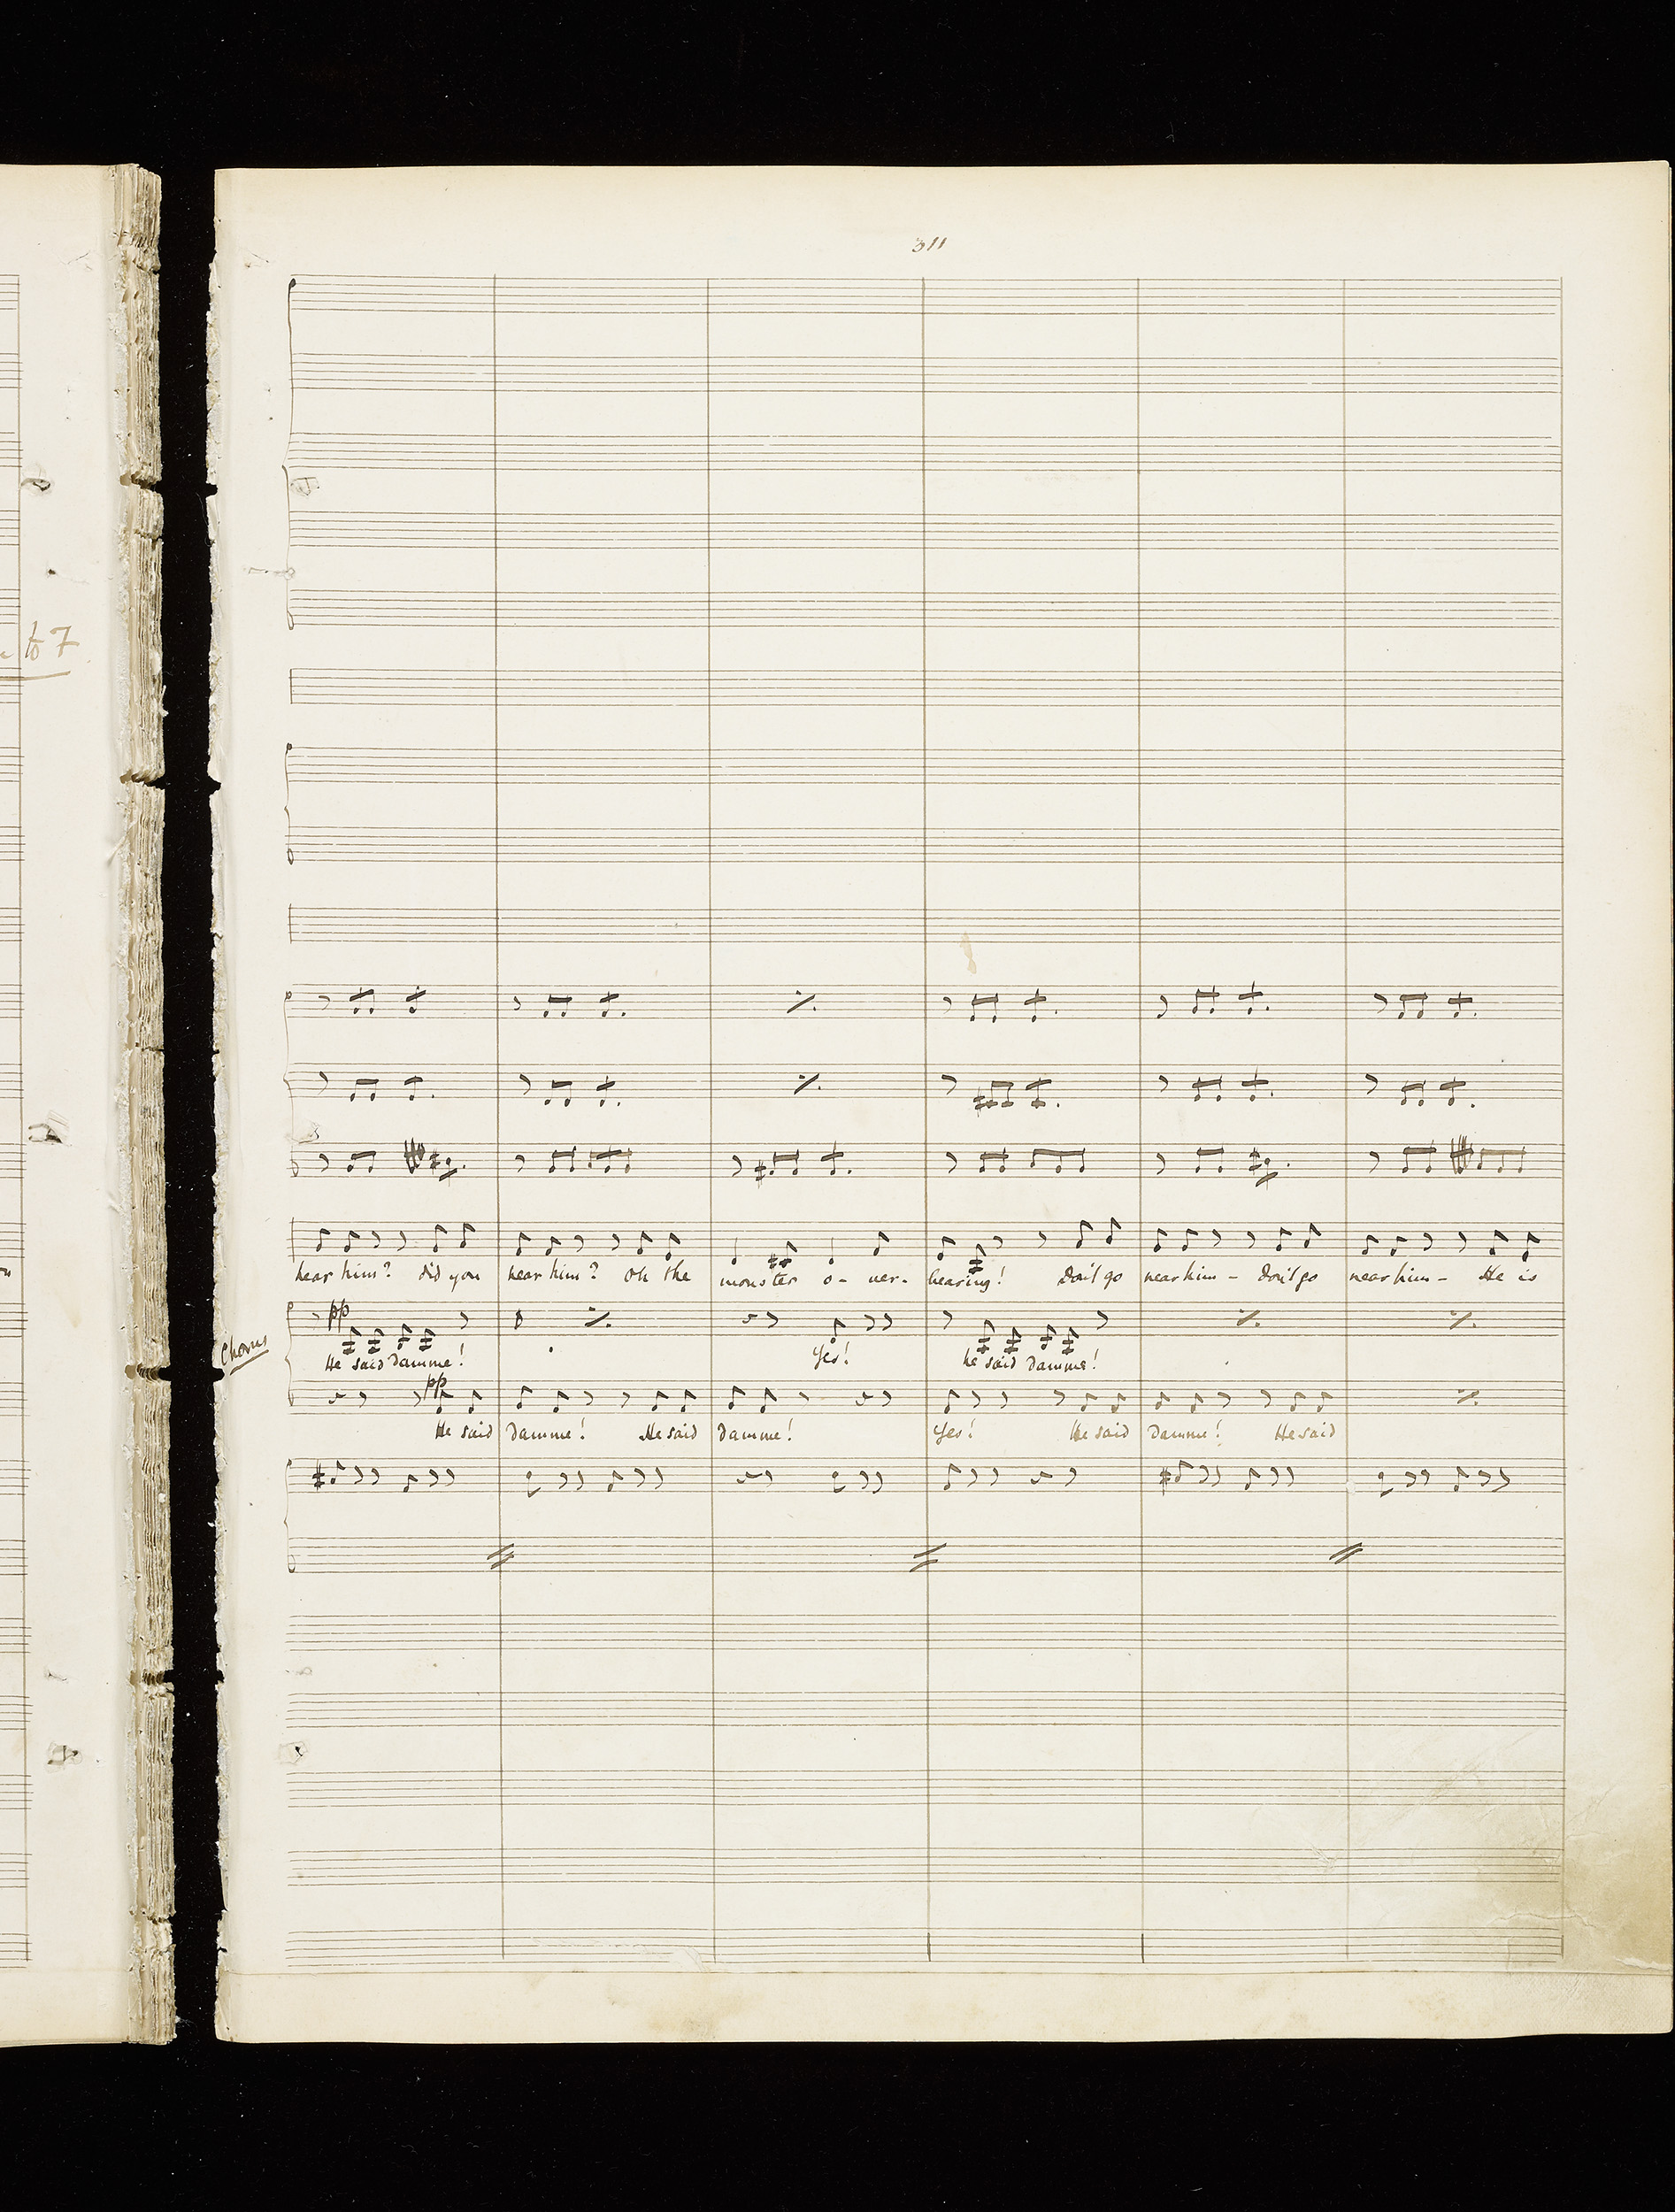 311
to 7
hear him? did you hear him? Oh the monster o-ver-hearing! Don't go near him- Don't go near him- He is
pp
Chorus
He said Damme! Yes! he said Damme!
pp
He said Damme! He said Damme! Yes! He said Damme! He said